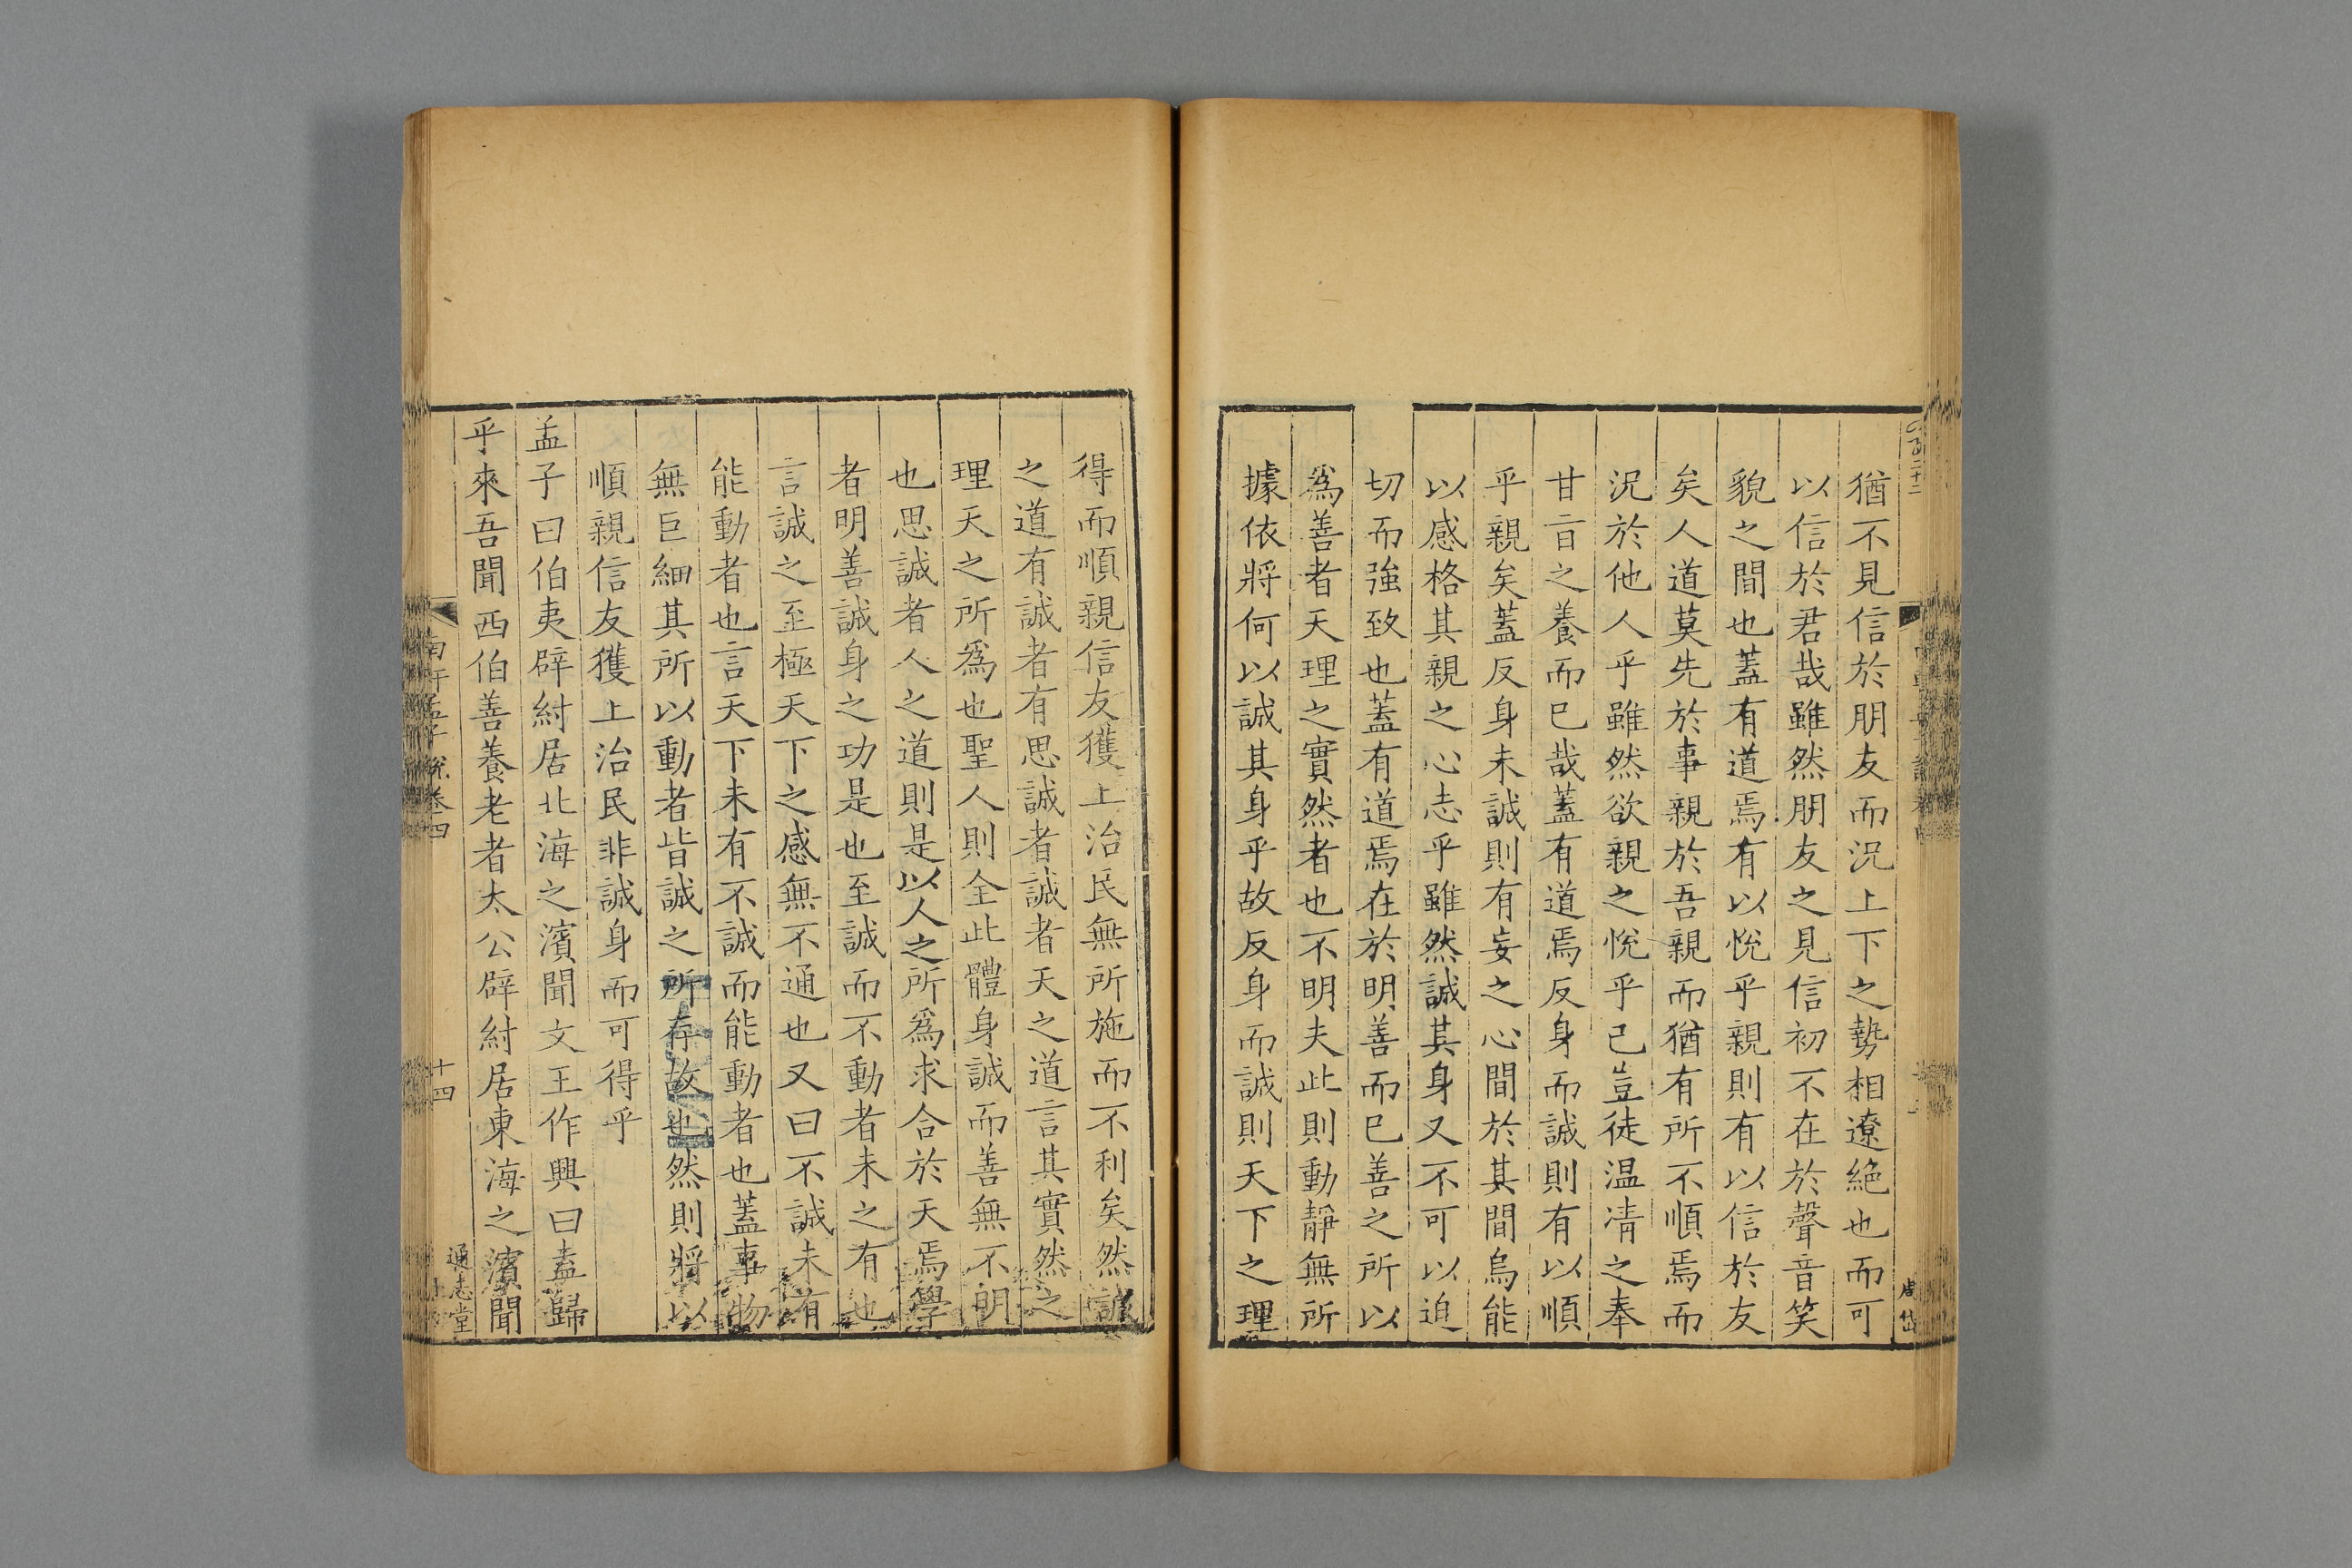 猶不見信於朋友而況上下之勢相遼絶也而可
以信於君哉雖然朋友之見信初不在於聲音笑
貌之間也蓋有道焉有以悅乎親則有以信於友
矣人道莫先於事親於吾親而猶有所不順焉而
況於他人乎雖然欲親之悅乎己豈徒温凊之奉
甘旨之養而已哉蓋有道焉反身而誠則有以順
乎親矣蓋反身未誠則有妄之心間於其間烏能
以感格其親之心志乎雖然誠其身又不可以迫
切而強致也蓋有道焉在於明善而已善之所以
爲善者天理之實然者也不明夫此則動靜無所
據依將何以誠其身乎故反身而誠則天下之理
周岱
得而順親信友獲上治民無所施而不利矣然誠
之道有誠者有思誠者誠者天之道言其實然之
理天之所爲也聖人則全此體身誠而善無不明
也思誠者人之道則是以人之所爲求合於天焉學
者明善誠身之功是也至誠而不動者未之有也
言誠之至極天下之感無不通也又曰不誠未有
能動者也言天下未有不誠而能動者也蓋事物
無巨細其所以動者皆誠之所存故也然則將以
順親信友獲上治民非誠身而可得乎
孟子曰伯夷辟紂居北海之濱聞文王作興曰盍歸
乎來吾聞西伯善養老者太公辟紂居東海之濱聞
南軒孟子說卷四
十四
通志堂